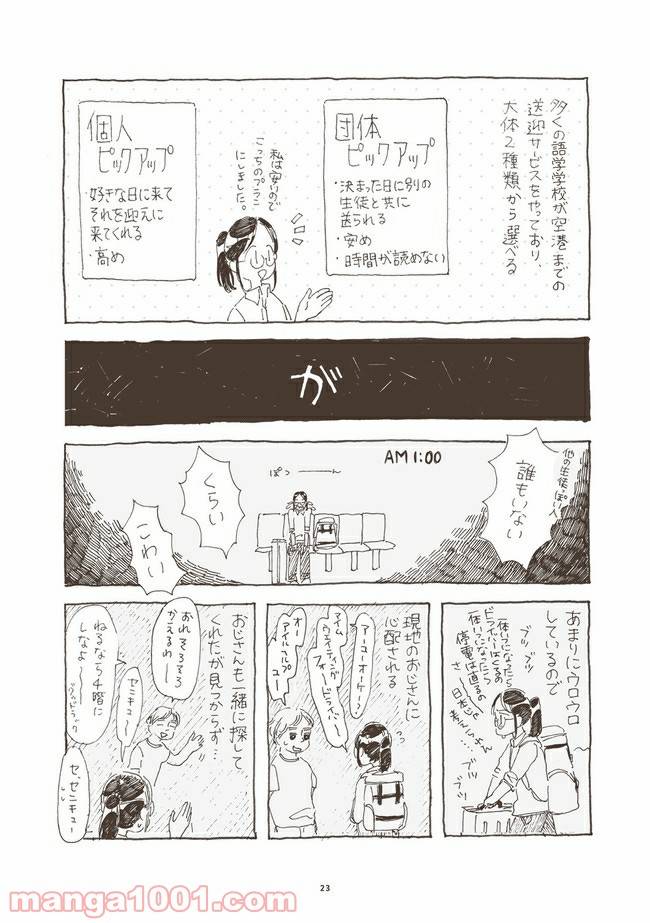 多くの語学学校が空港までの
送迎サービスをやっており、
大体2種類から選べる
団体
ピックアップ
・決まった日に別の
生徒と共に
送られる
・安め
・時間が読めない
私は安いので
こっちのプランに
にしました。
個人
ピックアップ
・好きな日に来て
それを迎えに
来てくれる
・高め
が
AM1:00
他の生徒っぽい人
誰もいない
ぽつーーーん
くらい
こわい
あまりにウロウロ
しているので
ブツブツ
一体いつになったら
ドライバーはくるの
一体いつになったら
停電は直るの
さ…
日本じゃ
考えられん
ブツ
ブツ
現地のおじさんに
心配される
アーユーオーケー?
アイム
ウエイティング
フォードライバー
オー
アイルヘルプ
ユー
おじさんも一緒に探して
くれたが見つからず…
おれそろそろ
かえるわー
セニキュー
ねるなら4階に
しなよー
グッドラック
セ、セニキュー
23
manga1001.com